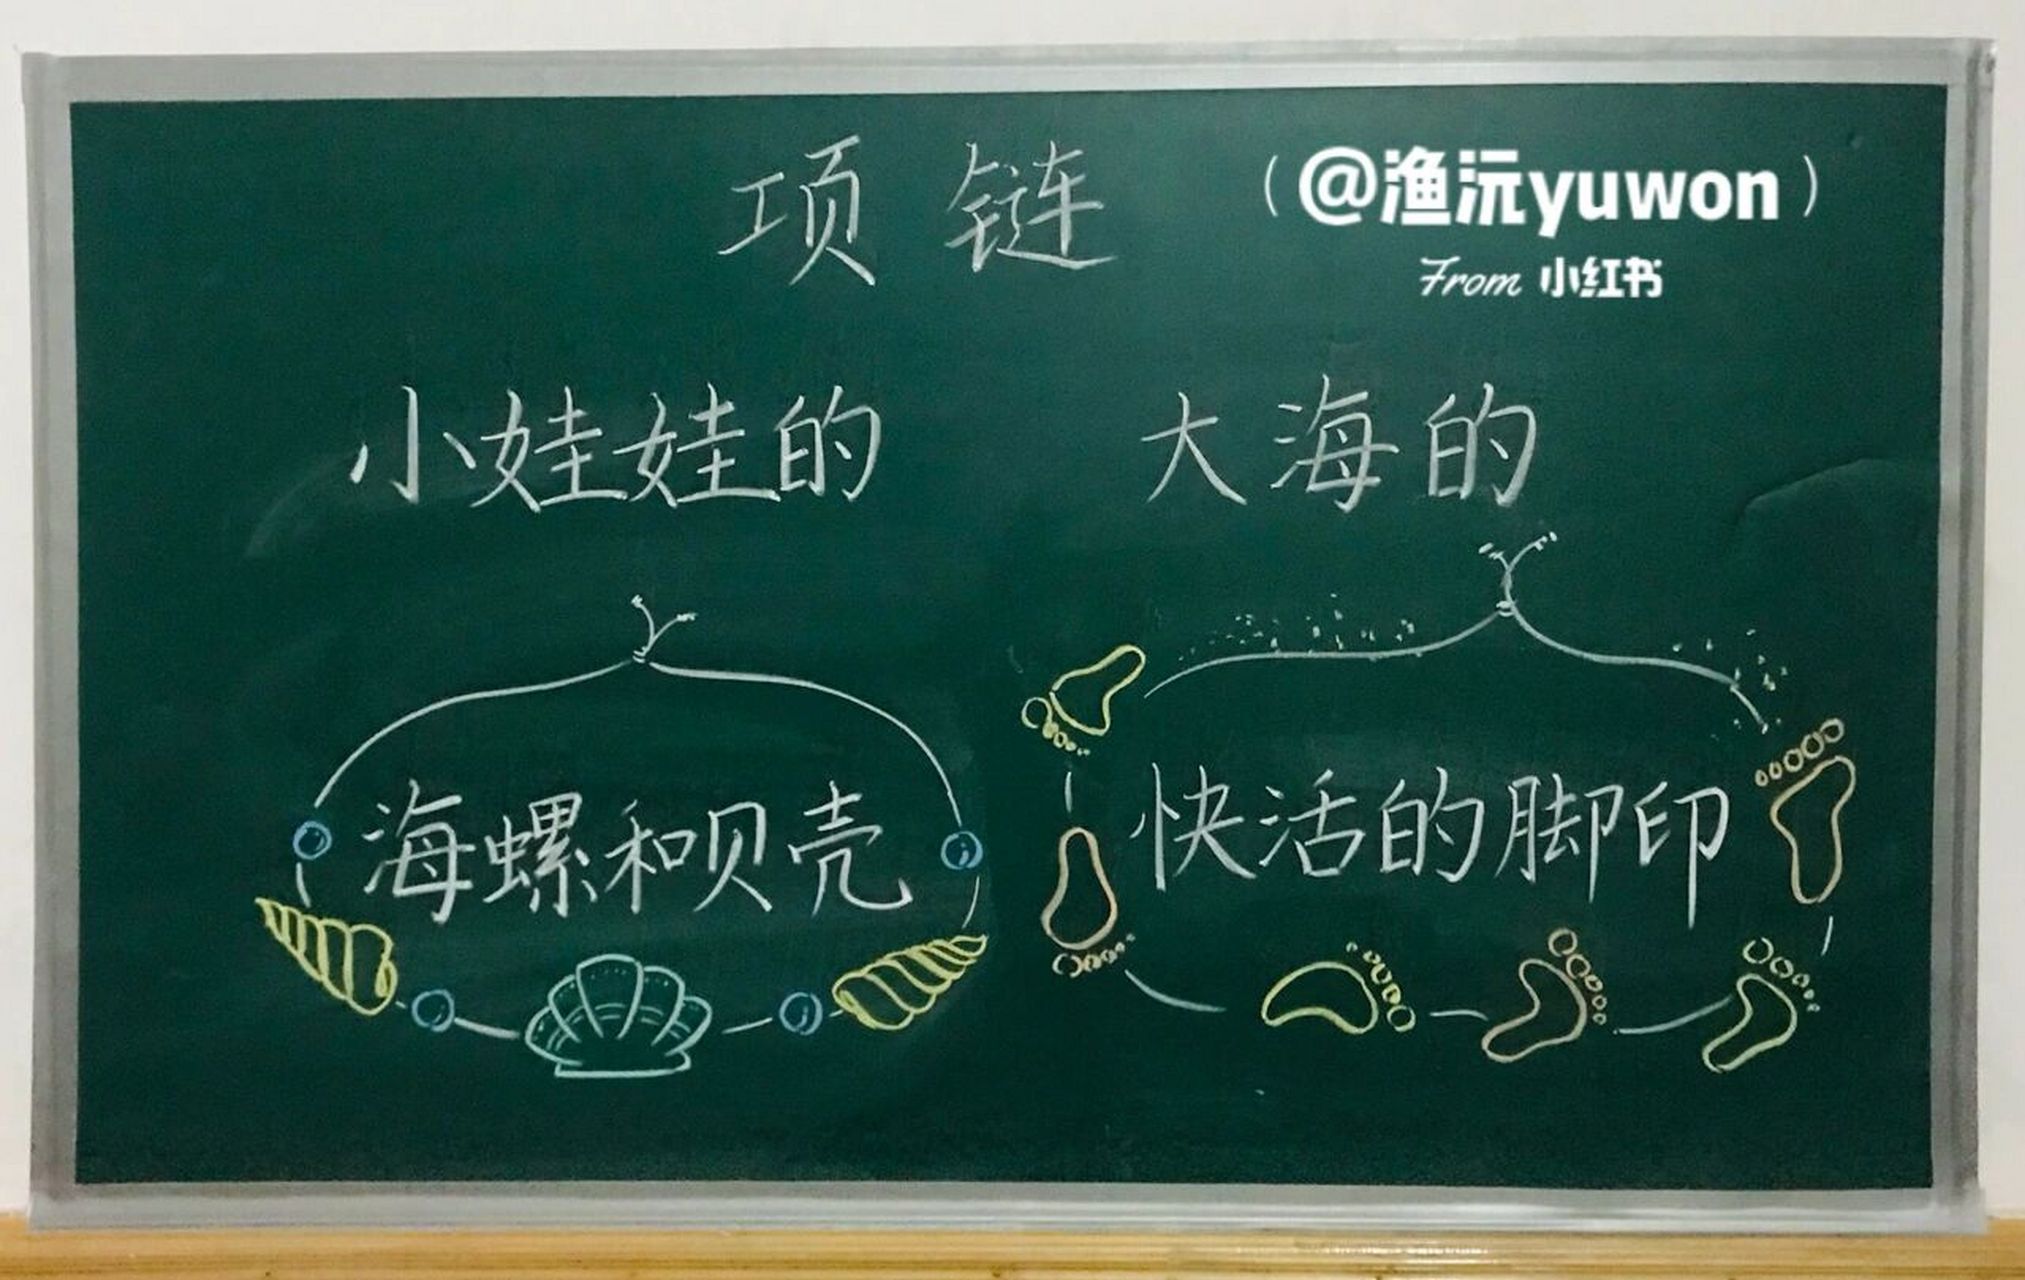 项链
（@渔沅yuwon）
From 小红书
小娃娃的
大海的
海螺和贝壳
快活的脚印